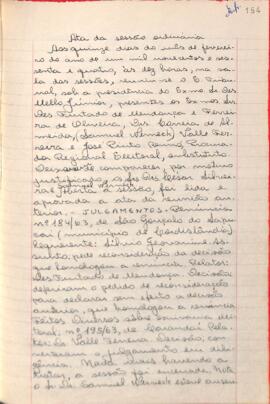 154
Ata da sessão ordinaria
Aos quinze dias do mês de feverei-
ro do ano de um mil novecentos e ses-
senta e quatro, às dez horas, na sa-
la das sessões, reuniu-se o E. Tribu-
nal, sob a presidência do Exmo. Sr. Des.
Mello Júnior, presentes os Exmos. Srs.
Des. Furtado de Mendonça e Ferrei-
ra de Oliveira, Drs. Correia de Al-
meida, (Samuel Werneck) Valle Fer-
reira e José Pinto Renno, Procura-
dor Regional Eleitoral, substituto.
Deixou de comparecer, por motivo
justificado, o Sr. Des. Cesar Silvei-
ra. Aberta a sessão, foi lida e
aprovada a ata da reunião an-
terior. - JULGAMENTOS: Renúncia
nº 184/63, de São Gonçalo do Sapu-
caí (município de Cordislândia)
Requerente: Silvio
pede reconsideração da decisão
que homologou a renúncia. Relator:
Des. Furtado de Mendonça. Decisão:
deferiram o pedido de reconsideração
para declarar sem efeito a decisão
anterior, que homologou a renúncia
Feitos Diversos sobre Escrivania elei-
toral: nº 195/63, de Carandaí Rela-
tor: Dr. Valle Ferreira. Decisão, con-
verteram o julgamento em dili-
gência. Nada mais havendo a
tratar, a sessão foi encerrada. Nota
o Sr. Dr. Samuel Werneck esteve ausen